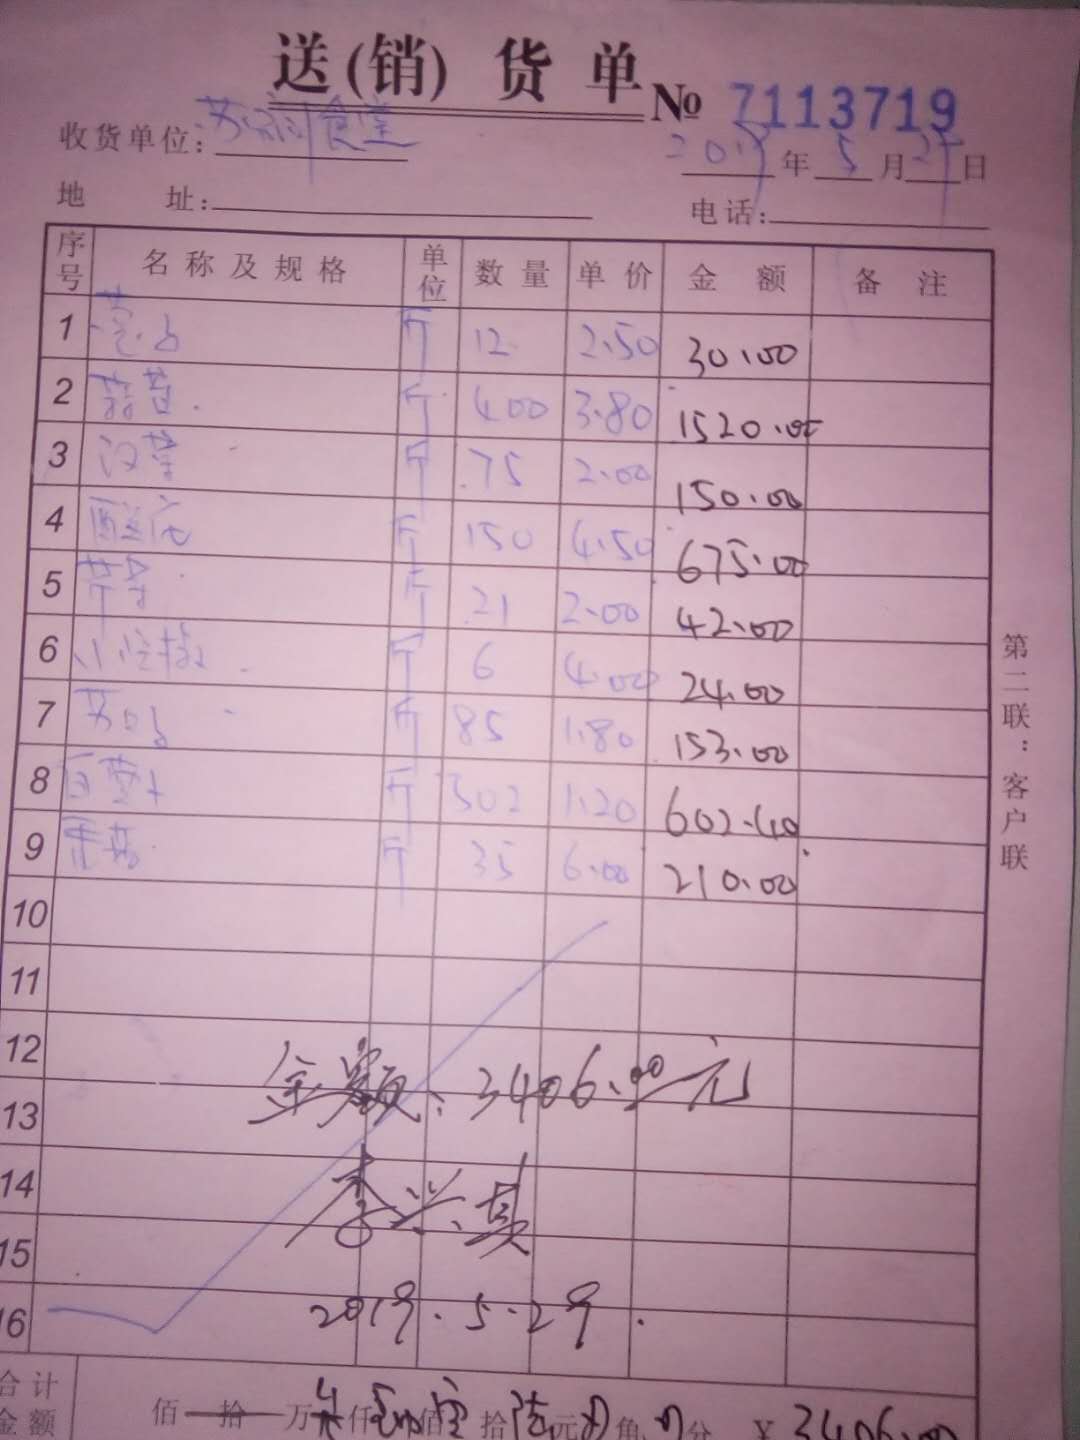 送(销) 货 单 № 7113719
收货单位: 食堂 2019 年 5 月 29 日
地 址: 电话:
序号 名称及规格 单位 数量 单价 金额 备注
1 斤 12 2.50 30.00
2 蒜苗 斤 400 3.80 1520.00
3 汉菜 斤 75 2.00 150.00
4 斤 150 4.50 675.00
5 斤 21 2.00 42.00
6 斤 6 4.00 24.00
7 斤 85 1.80 153.00
8 斤 302 1.20 602.40
9 斤 35 6.00 210.00
10
11
12
13
14
15
16
金额: 3406.00元
李兴真
2019.5.29.
合计金额 佰 拾 万 仟 佰 拾 陆元 角 分 ¥ 3406.00
第二联:客户联